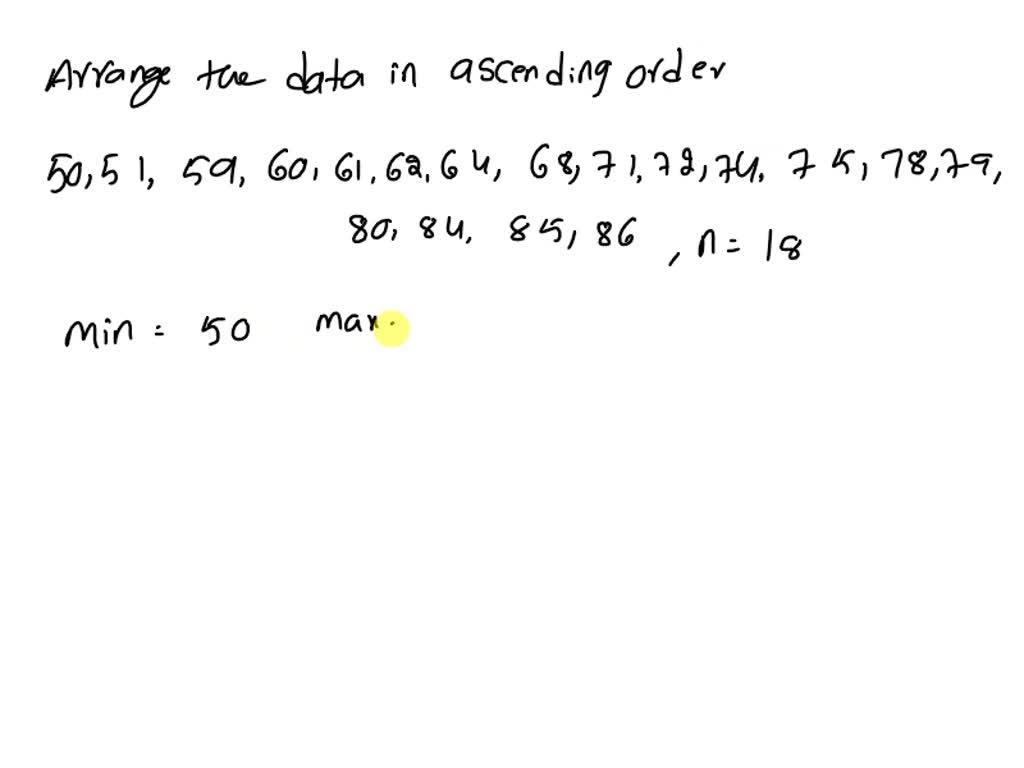 Arrange the data in ascending order
50, 51, 59, 60, 61, 62, 64, 68, 71, 72, 74, 75, 78, 79,
80, 84, 85, 86 , n = 18
min = 50 max.